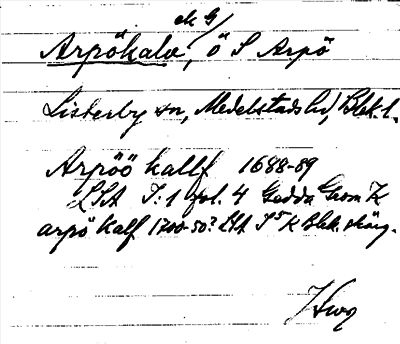 ek G/
Arpökalv, ö S Arpö
Listerby sn, Medelstads hd, Blek. l.
Arpöö kallf 1688-89
LSA I:1 fol. 4 Gedda Grom K
arpö Kalf 1700-50? LSA I 5 K Blek. skärg.